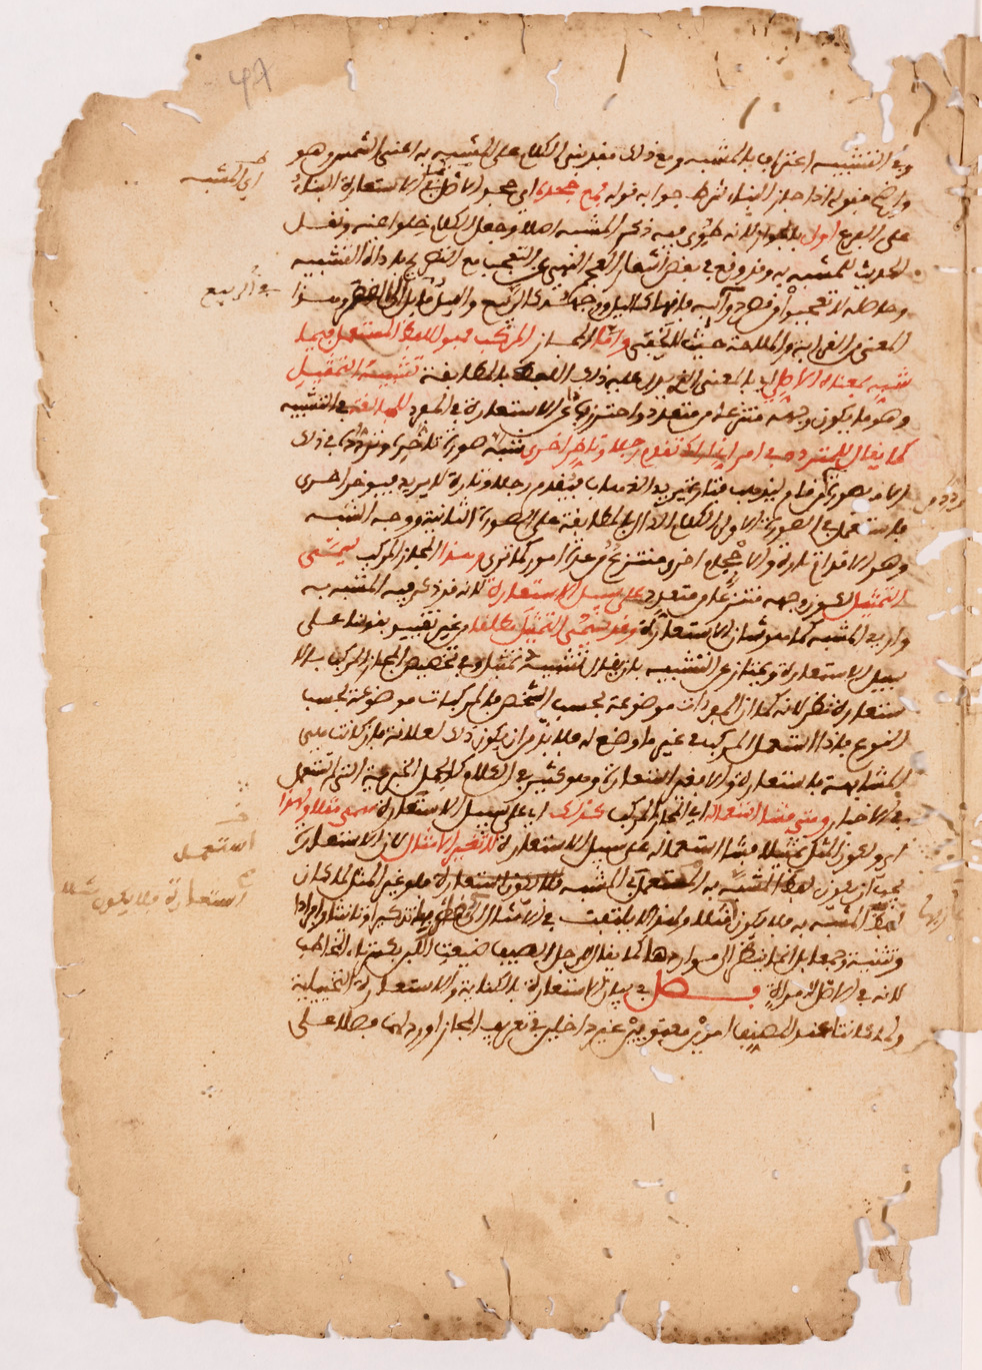 وفي التشبيه اعتراف بالمشبه ومع ذلك فقد بنى الكلام على المشبه به اعني الشمس وهو
واضح فقوله اذا جاز البناء شرط جوابه قوله فمع جحده اي جحد الاصل كما في الاستعارة البناء
على الفرع اولى بالجواز لانه طوي فيه ذكر المشبه اصلا وجعل الكلام خلوا عنه ونقل
الحديث للمشبه به وقد وقع في بعض اشعار العجم النهي عن التعجب مع التصريح باداة التشبيه
وحاصله لا تعجبوا من قصر ذوائبه فانها كالليل ووجهه كالربيع والليل في الربيع مائل الى القصر وهذا
المعنى من الغرابة والملاحة بحيث لا يخفى واما المجاز المركب فهو اللفظ المستعمل فيما
شبه بمعناه الاصلي اي بالمعنى الذي يدل عليه ذلك اللفظ بالمطابقة تشبيه التمثيل
وهو ما يكون وجهه منتزعا من متعدد واحترز بهذا عن الاستعارة في المفرد للمبالغة في التشبيه
كما يقال للمتردد في امر اني اراك تقدم رجلا وتوخر اخرى شبه صورة تردده في ذلك
الامر بصورة تردد من قام ليذهب فتارة يريد الذهاب فيقدم رجلا وتارة لا يريد فيوخر اخرى
فاستعمل في الصورة الاولى الكلام الدال بالمطابقة على الصورة الثانية ووجه الشبه
وهو الاقدام تارة والاحجام اخرى منتزع من عدة امور كما ترى وهذا المجاز المركب يسمى
التمثيل لكون وجهه منتزعا من متعدد على سبيل الاستعارة لانه قد ذكر فيه المشبه به
واريد المشبه كما هو شان الاستعارة وقد يسمى التمثيل مطلقا من غير تقييد بقولنا على
سبيل الاستعارة ويمتاز عن التشبيه بان يقال له تشبيه تمثيل وفي تخصيص المجاز المركب بالا
ستعارة نظر لانه كما ان المفردات موضوعة بحسب الشخص فالمركبات موضوعة بحسب
النوع فاذا استعمل المركب في غير ما وضع له فلا بد من ان يكون ذلك لعلاقة فان كانت هي
المشابهة فاستعارة والا فغير استعارة وهو كثير في الكلام كالجمل الخبرية التي لم تستعمل
في الاخبار ومتى فشا استعماله اي المجاز المركب كذلك اي على سبيل الاستعارة سمي مثلا ولهذا
اي ولكون المثل تمثيلا فشا استعماله على سبيل الاستعارة لا تغير الامثال لان الاستعارة
يجب ان يكون لفظ المشبه به المستعمل في المشبه فلو غير المثل لما كان
لفظ المشبه به فلا يكون مثلا ولهذا لا يلتفت في الامثال الى مضاربها تذكيرا وتانيثا وافرادا
وتثنية وجمعا بل انما ينظر الى مواردها كما يقال للرجل بالصيف ضيعت اللبن بكسر تاء الخطاب
لانه في الاصل لامراة فصل في بيان الاستعارة بالكناية والاستعارة التخييلية
ولما كانتا عند المصنف امرين معنويين غير داخلين في تعريف المجاز اورد لهما فصلا على
اي المشبه
في الربيع
استعمل
استعارة فلا يكون مثلا